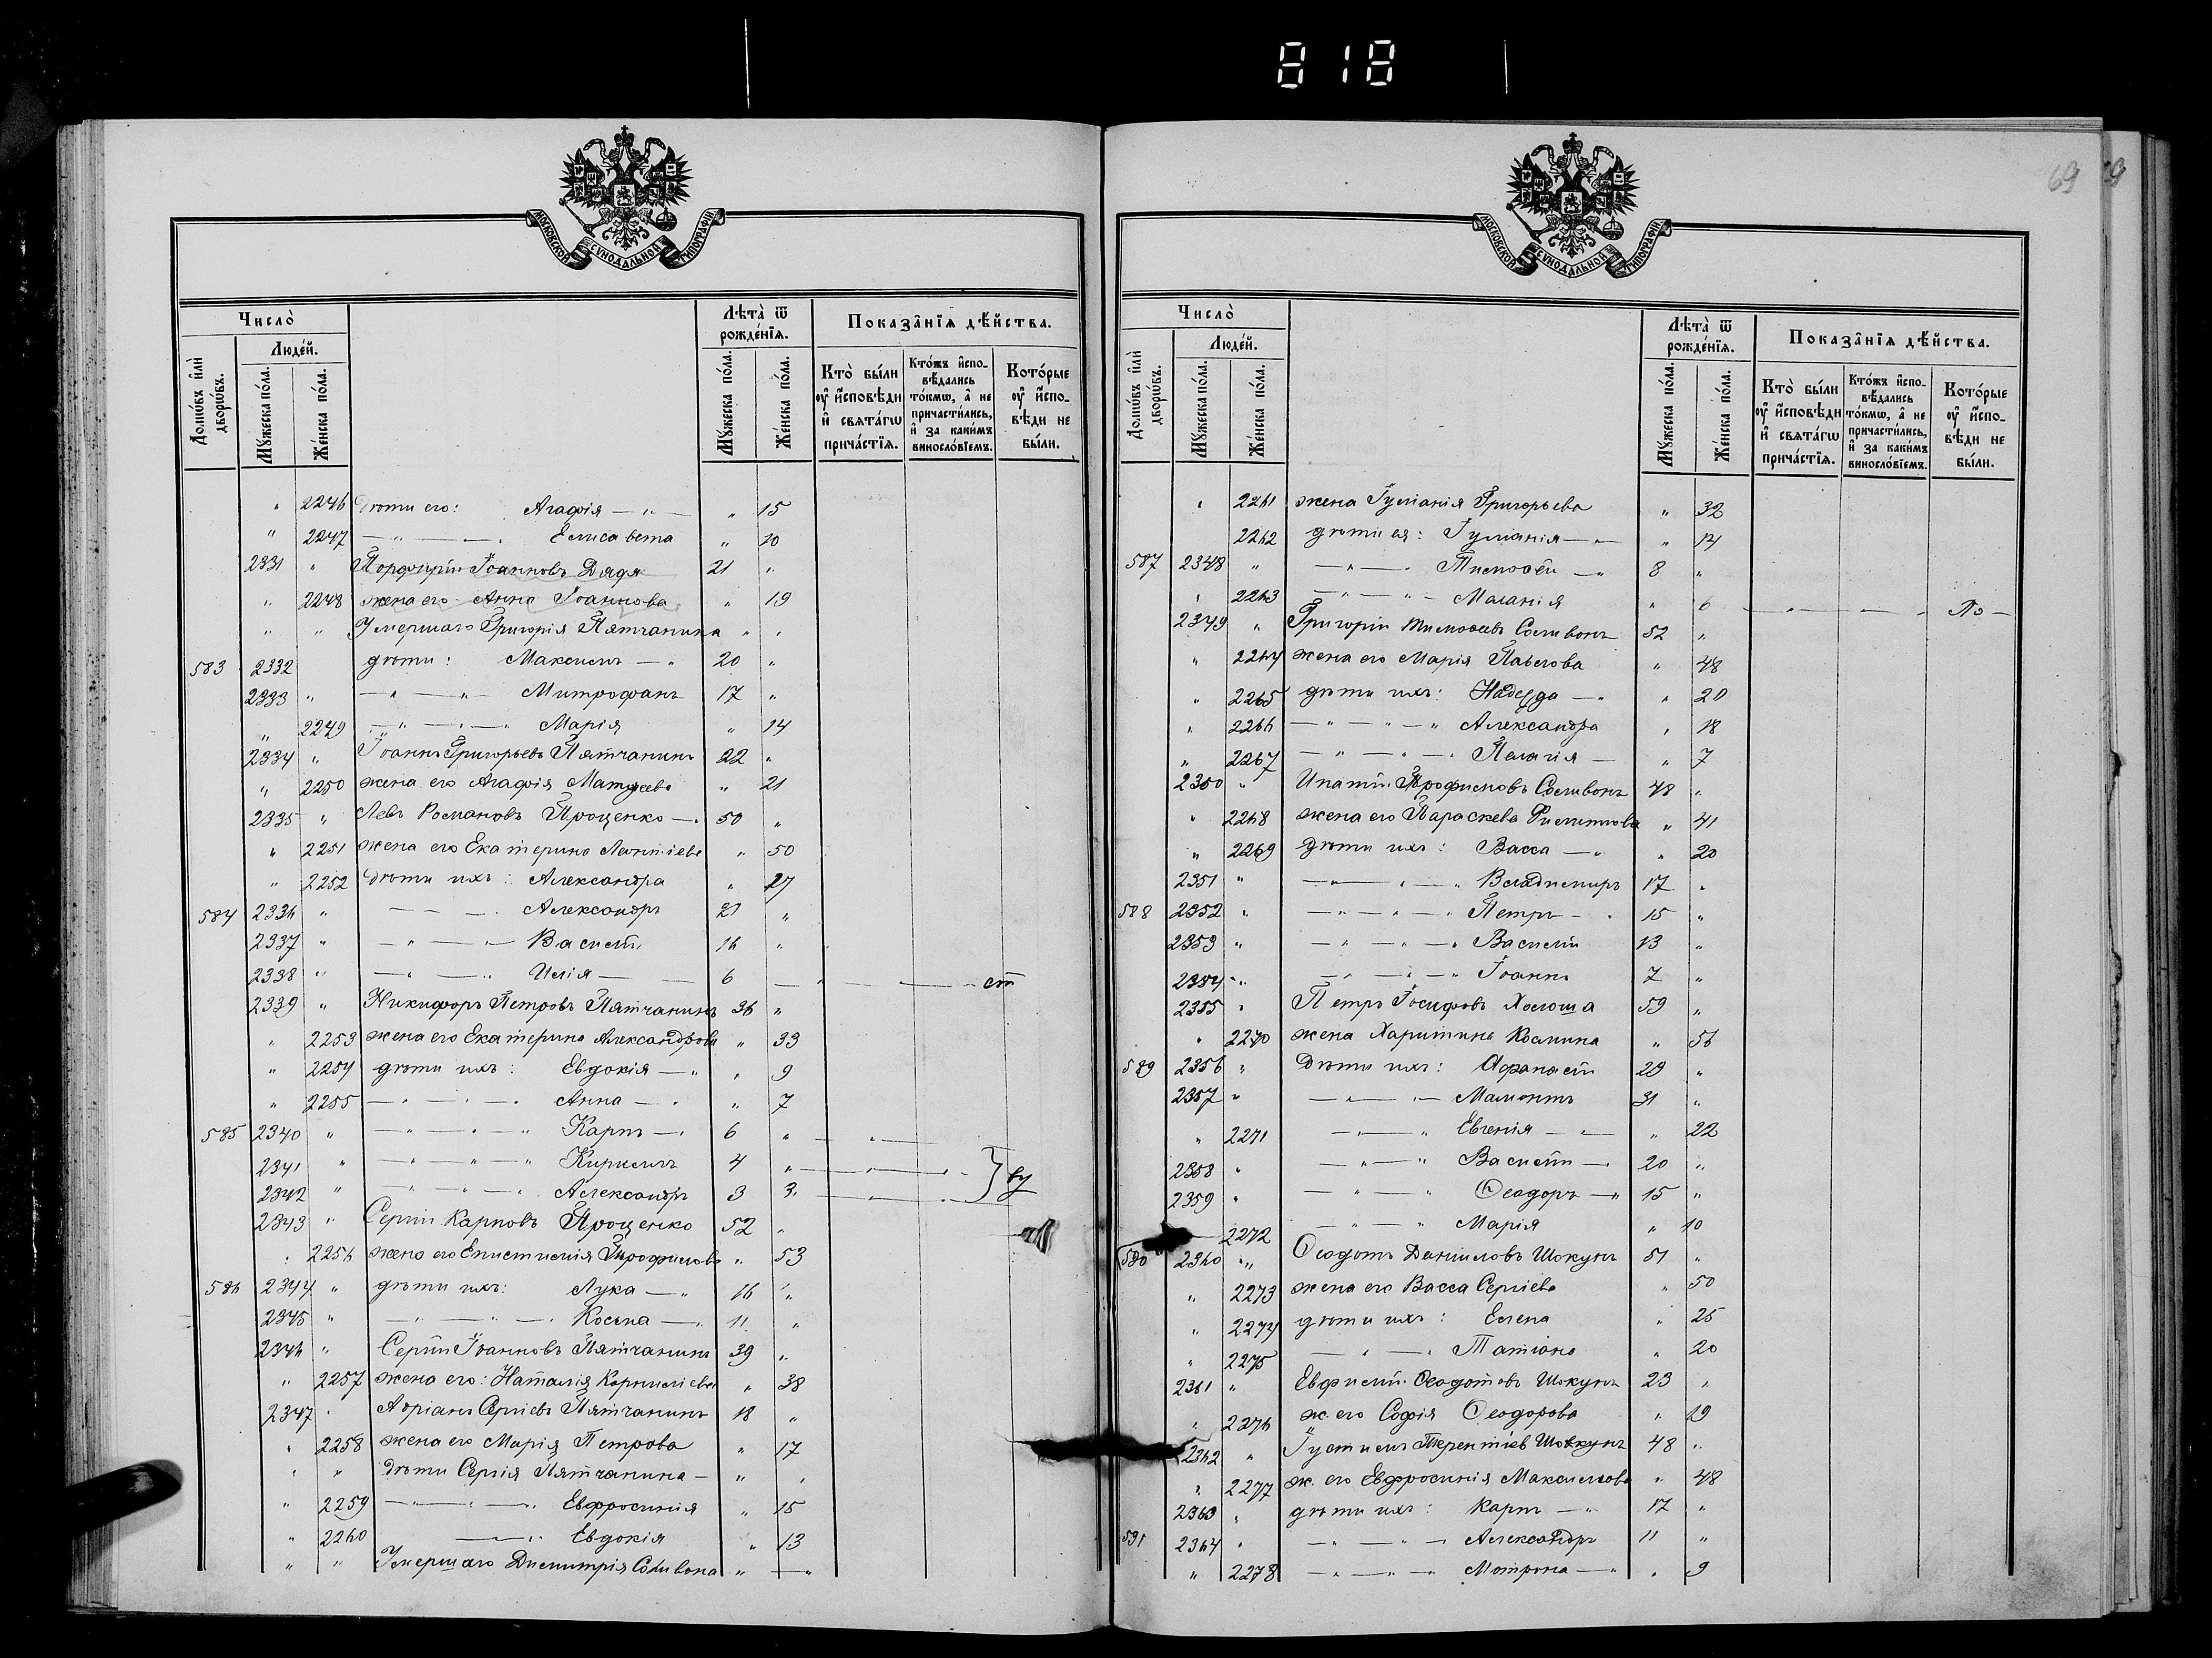 818
69
МОСКОВСКОЙ СУНОДАЛЬНОЙ ТИПОГРАФІИ
Число̀
Домѡ́въ и҆лѝ дворѡ́въ.
Люде́й.
Мꙋ́жеска по́ла.
Же́нска по́ла.
Лѣта̀ ѿ рожде́нїѧ.
Мꙋ́жеска по́ла.
Же́нска по́ла.
Показа̑нїѧ дѣ́йства.
Кто̀ бы́ли ᲂу҆ и҆́сповѣди и҆ свѧта́гѡ прича́стїѧ.
Кто́жъ и҆сповѣ́дались то́кмѡ, а҆ не причасти́лись, и҆ за каки́мъ виносло́вїемъ.
Кото́рые ᲂу҆ и҆́сповѣди не бы́ли.
" 2246 дѣти его: Агафія — " — " 15
" 2247 — " — " Елисавета " 20
2331 " Порфирій Іоанновъ Дядя 21 "
" 2248 жена его Анна Іоаннова " 19
" " Умершаго Григорія Пятчанина " "
583 2332 дѣти: Максимъ — " 20 "
2333 " — " — " — Митрофанъ 17 "
" 2249 — " — " — " Марія " 14
2334 " Іоаннъ Григорьевъ Пятчанинъ 22 "
" 2250 жена его Агафія Матѳеева " 21
2335 " Левъ Романовъ Проценко — " 50 "
" 2251 жена его Екатерина Леонтіева " 50
" 2252 дѣти ихъ: Александра " 27
584 2336 " — — " Александръ 21 "
2337 " — " — " — Василій 16 "
2338 " — " — " Илія — 6 — " — " — " ст
2339 " Никифоръ Петровъ Пятчанинъ 36 "
" 2253 жена его Екатерина Александрова " 33
" 2254 дѣти ихъ: Евдокія — " " 9
" 2255 — " — " — " Анна — " " 7
585 2340 " — " — " — " Карпъ — " 6 " — " —
2341 " — " — " — " Кириллъ 4 " — " — " } ву
2342 " — " — " — " Александръ 3 3 " — " — "
2343 " Сергій Карповъ Проценко 52 "
" 2256 жена его Епистимія Трофимова " 53
586 2344 " дѣти ихъ: Лука — " 16 "
2345 " — " — " — " Косьма — " 11 "
2346 " Сергій Іоанновъ Пятчанинъ 39 "
" 2257 жена его: Наталія Корниліева " 38
2347 " Адріанъ Сергіевъ Пятчанинъ 18 "
" 2258 жена его Марія Петрова " 17
" " Дѣти Сергія Пятчанина — " "
" 2259 — " — " — " Евфросинія " 15
" 2260 — " — " Евдокія " 13
" " Умершаго Димитрія Соливона " — "
Число̀
Домѡ́въ и҆лѝ дворѡ́въ.
Люде́й.
Мꙋ́жеска по́ла.
Же́нска по́ла.
Лѣта̀ ѿ рожде́нїѧ.
Мꙋ́жеска по́ла.
Же́нска по́ла.
Показа̑нїѧ дѣ́йства.
Кто̀ бы́ли ᲂу҆ и҆́сповѣди и҆ свѧта́гѡ прича́стїѧ.
Кто́жъ и҆сповѣ́дались то́кмѡ, а҆ не причасти́лись, и҆ за каки́мъ виносло́вїемъ.
Кото́рые ᲂу҆ и҆́сповѣди не бы́ли.
МОСКОВСКОЙ СУНОДАЛЬНОЙ ТИПОГРАФІИ
" 2261 жена Іуліанія Григорьева " 32
2262 дѣти ея: Іуліанія — " 14
587 2348 " — " — " Тимоѳей — " 8 "
" 2263 — " — " — Маланія " 6 — " — " —
2349 " Григорій Тимоѳеевъ Соливонъ 52 "
" 2264 жена его Марія Павлова " 48
" 2265 дѣти ихъ: Надежда — " " 20
" 2266 — " — " — " Александра " 18
" 2267 — " — " — " Пелагія — " 7
2350 " Ипатій Трофимовъ Соливонъ 48 "
" 2268 жена его Параскева Филиппова " 41
" 2269 дѣти ихъ: Васса — " " 20
2351 " — " — " — " Владимиръ 17 "
588 2352 " — " — " — " Петръ — " 15 "
2353 " — " — " — " Василій 13 "
2354 " — " — " — " Іоаннъ 7 "
2355 " Петръ Іосифовъ Холоша 59 "
" 2270 жена Харитина Космина " 56
589 2356 " Дѣти ихъ: Аѳанасій 29 "
2357 " — " — " — Мамонтъ 31 "
" 2271 — " — " Евгенія — " — " 22
2358 " — " — " Василій — " 20 "
2359 " — " — " Ѳеодоръ — " 15 "
2272 — " — " Марія " 10
590 2360 " Ѳеодотъ Даниловъ Шокунъ 51 "
" 2273 жена его Васса Сергіева " 50
" 2274 дѣти ихъ: Елена " 25
" 2275 — " — " Татіана " 20
2361 " Евфимій Ѳеодотовъ Шокунъ 23 "
" 2276 ж. его Софія Ѳеодорова " 19
2362 " Іустинъ Терентіевъ Шовкунъ 48 "
" 2277 ж. его Евфросинія Максимова " 48
2363 " дѣти ихъ: Карпъ — " 17 "
591 2364 " — " — " — Александръ 11 "
" 2278 — " — " — " Мотрона — " " 9